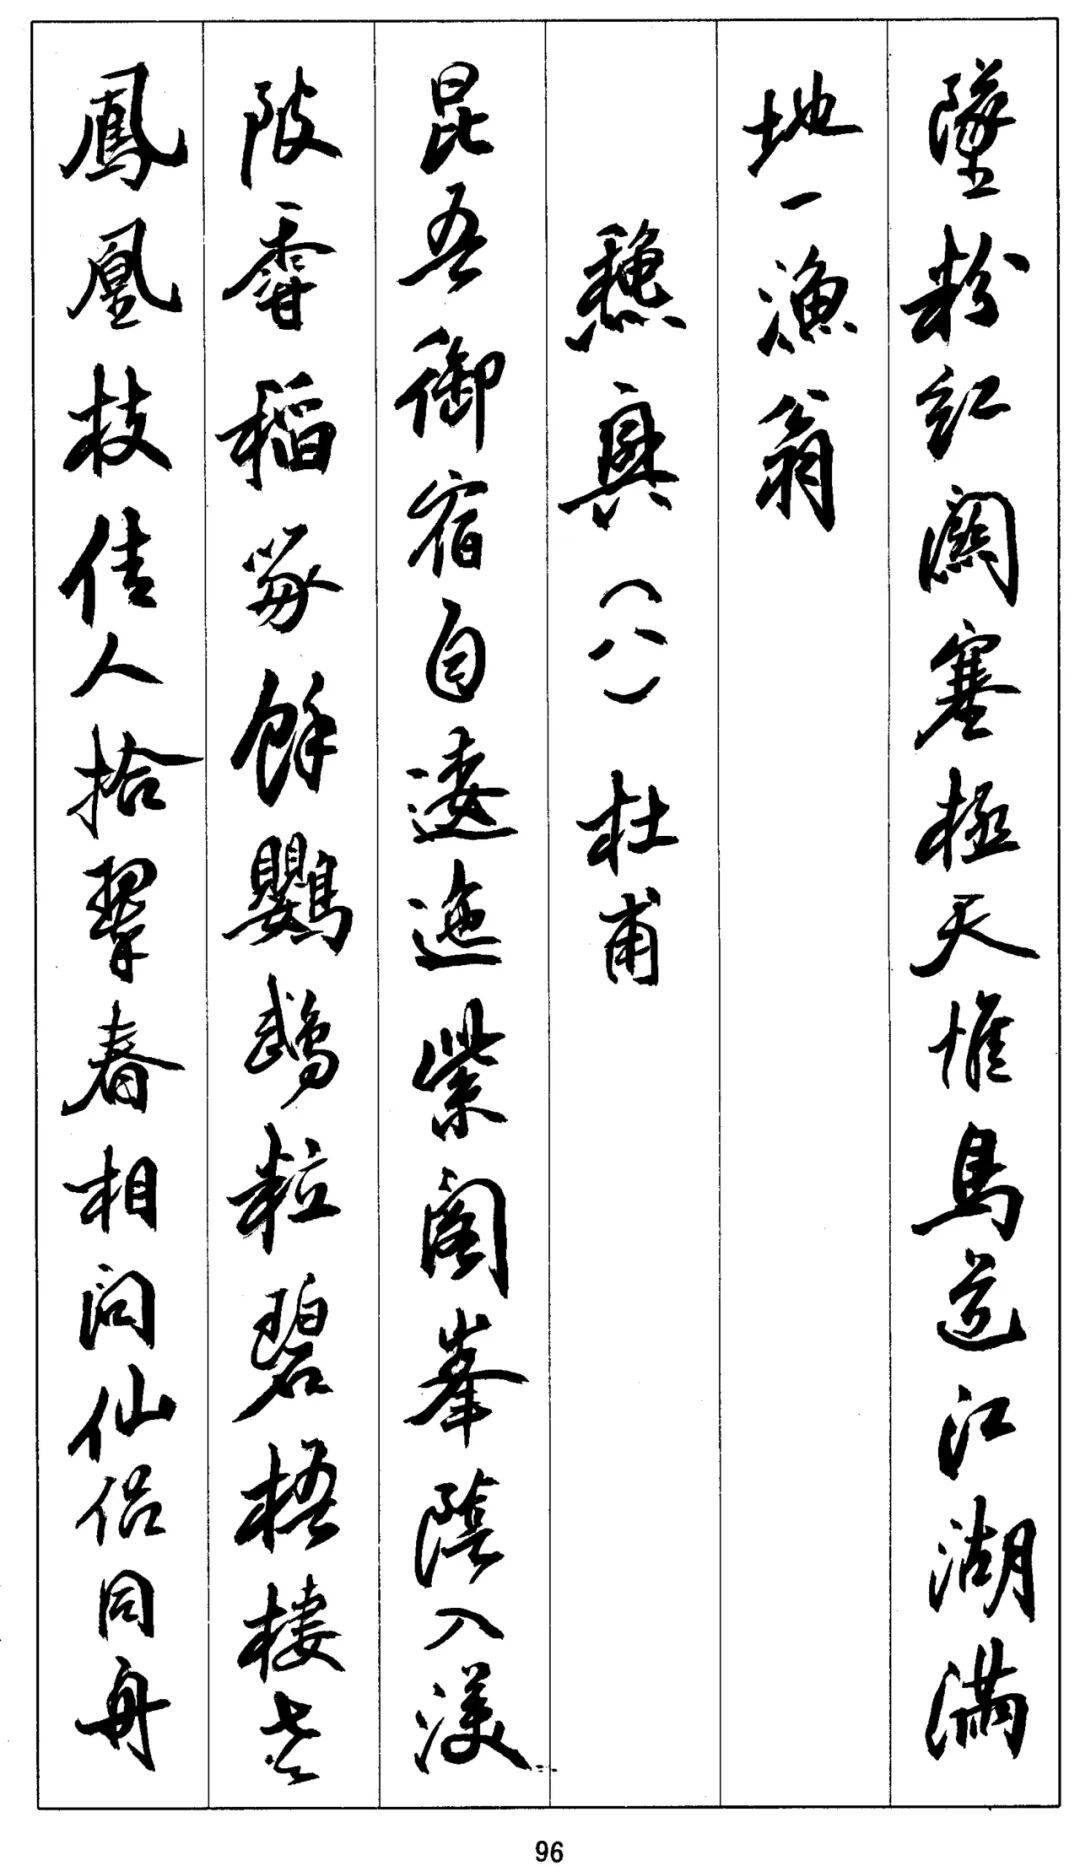 墜粉紅關塞極天惟鳥道江湖滿
地一漁翁
龝興（八）杜甫
昆吾御宿自逶迤紫閣峯陰入渼
陂香稻啄餘鸚鵡粒碧梧棲老
鳳凰枝佳人拾翠春相問仙侶同舟
96